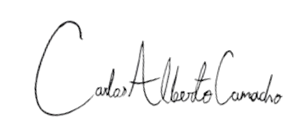 Carlos Alberto Camacho